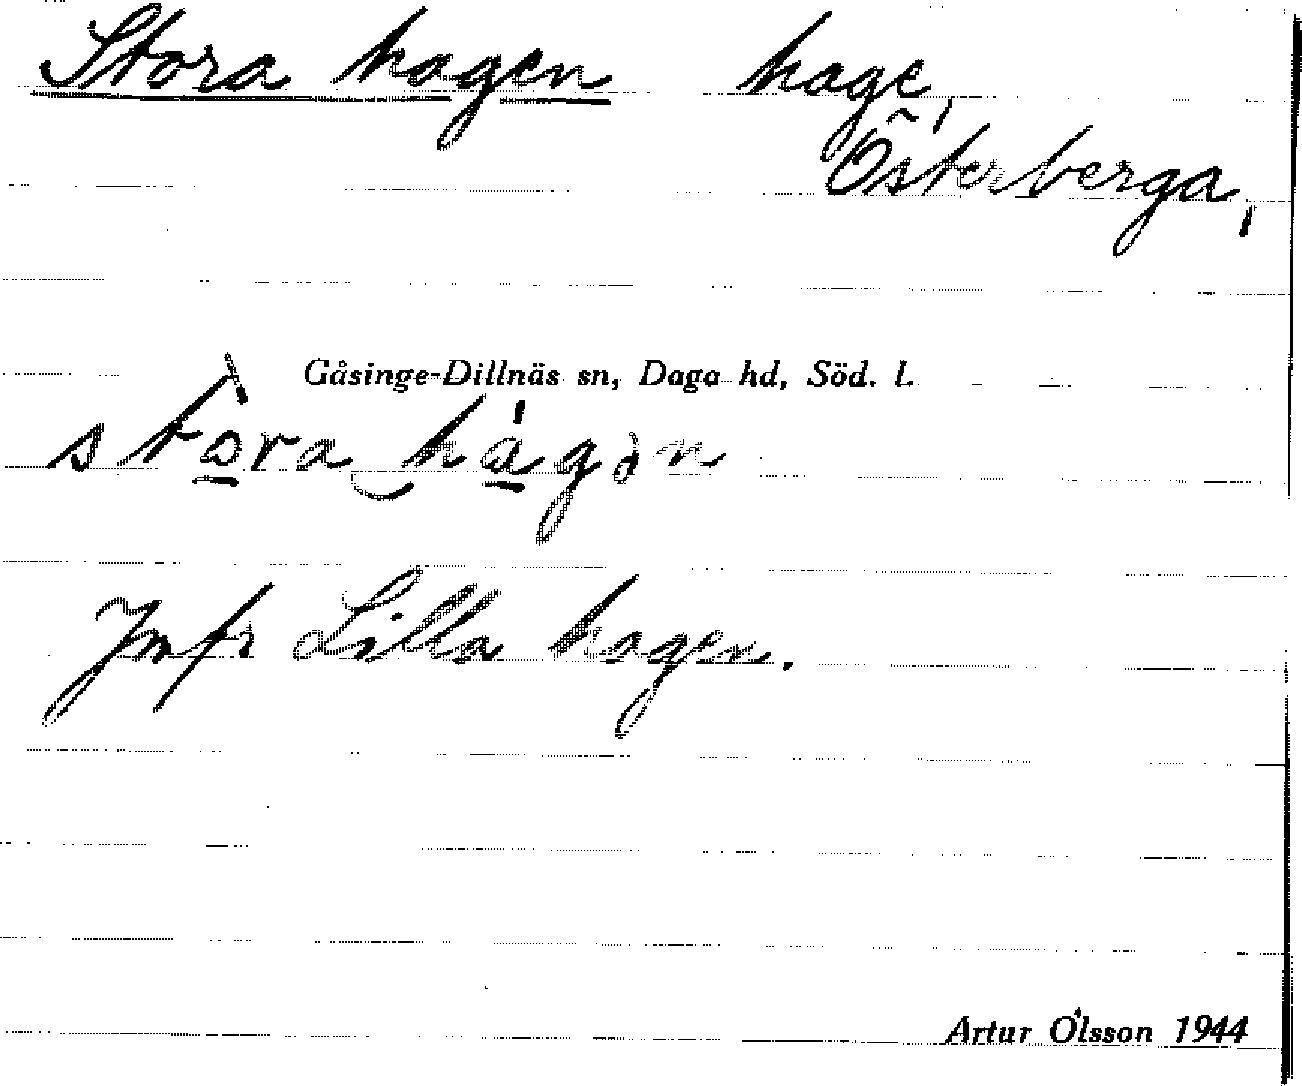 Stora hagen hage,
Österberga,
Gåsinge-Dillnäs sn, Daga hd, Söd. l.
stò̱ra‿há̱gən
Jmfr Lilla hagen.
Artur Olsson 1944